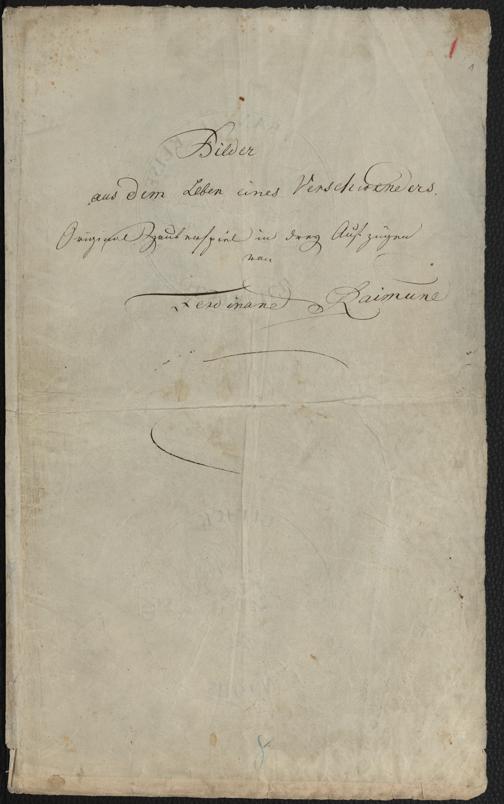 Bilder
aus dem Leben eines Verschwenders.
Original Zauberspiel in drey Aufzügen
von
Ferdinand Raimund